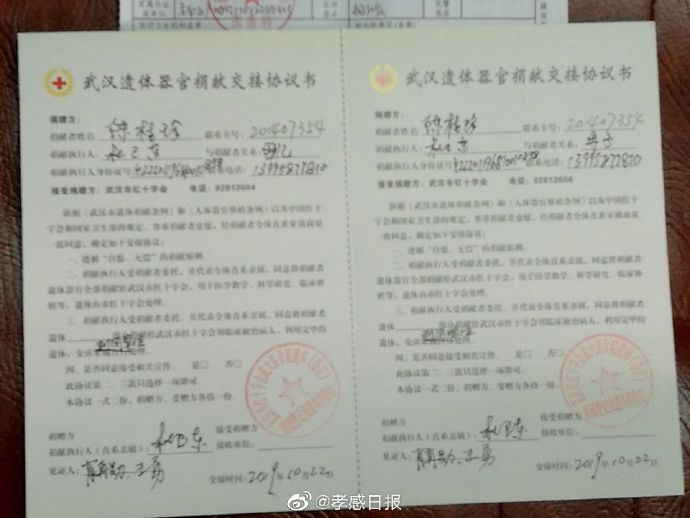 武汉遗体器官捐献交接协议书
捐赠方：
捐献者姓名 联系卡号：201407354
捐献执行人： 与捐献者关系：
捐献执行人身份证号 联系电话：13995877810
接受捐赠方：武汉市红十字会 电话：82812604
依据《武汉市遗体捐献条例》和《人体器官移植条例》以及中国红十
字会和国家卫生部的规定，尊重捐献者意愿，经捐献者全体直系家属商量
一致同意，确定如下交接协议：
一、遵循“自愿、无偿”的捐献原则。
二、捐献执行人受捐献者委托，并代表全体直系亲属，同意将捐献者
遗体器官全部捐献给武汉市红十字会，用于医学教学、科学研究、临床移
植等，遗体由市红十字会处理。
三、捐献执行人受捐献者委托，并代表全体直系亲属，同意将捐献者
遗体 部分捐献给武汉市红十字会用临床救治病人，利用完毕的
遗体，交由 处理。
四、是否同意接受相关宣传。 是□ 否□
此协议第二、三款只选择一项即可。
本协议一式二份，捐赠方、受赠方各持一份。
捐赠方 接受捐赠方
捐献执行人（直系亲属）： 接收单位：
见证人： 王勇
交接时间：2019年10月22日
武汉遗体器官捐献交接协议书
捐赠方：
捐献者姓名 联系卡号：201407354
捐献执行人： 与捐献者关系：母子
捐献执行人身份证号 联系电话：13995877810
接受捐赠方：武汉市红十字会 电话：82812604
依据《武汉市遗体捐献条例》和《人体器官移植条例》以及中国红十
字会和国家卫生部的规定，尊重捐献者意愿，经捐献者全体直系家属商量
一致同意，确定如下交接协议：
一、遵循“自愿、无偿”的捐献原则。
二、捐献执行人受捐献者委托，并代表全体直系亲属，同意将捐献者
遗体器官全部捐献给武汉市红十字会，用于医学教学、科学研究、临床移
植等，遗体由市红十字会处理。
三、捐献执行人受捐献者委托，并代表全体直系亲属，同意将捐献者
遗体 部分捐献给武汉市红十字会用临床救治病人，利用完毕的
遗体，交由 处理。
四、是否同意接受相关宣传。 是□ 否□
此协议第二、三款只选择一项即可。
本协议一式二份，捐赠方、受赠方各持一份。
捐赠方 接受捐赠方
捐献执行人（直系亲属）： 接收单位：
见证人： 王勇
交接时间：2019年10月22日
@孝感日报